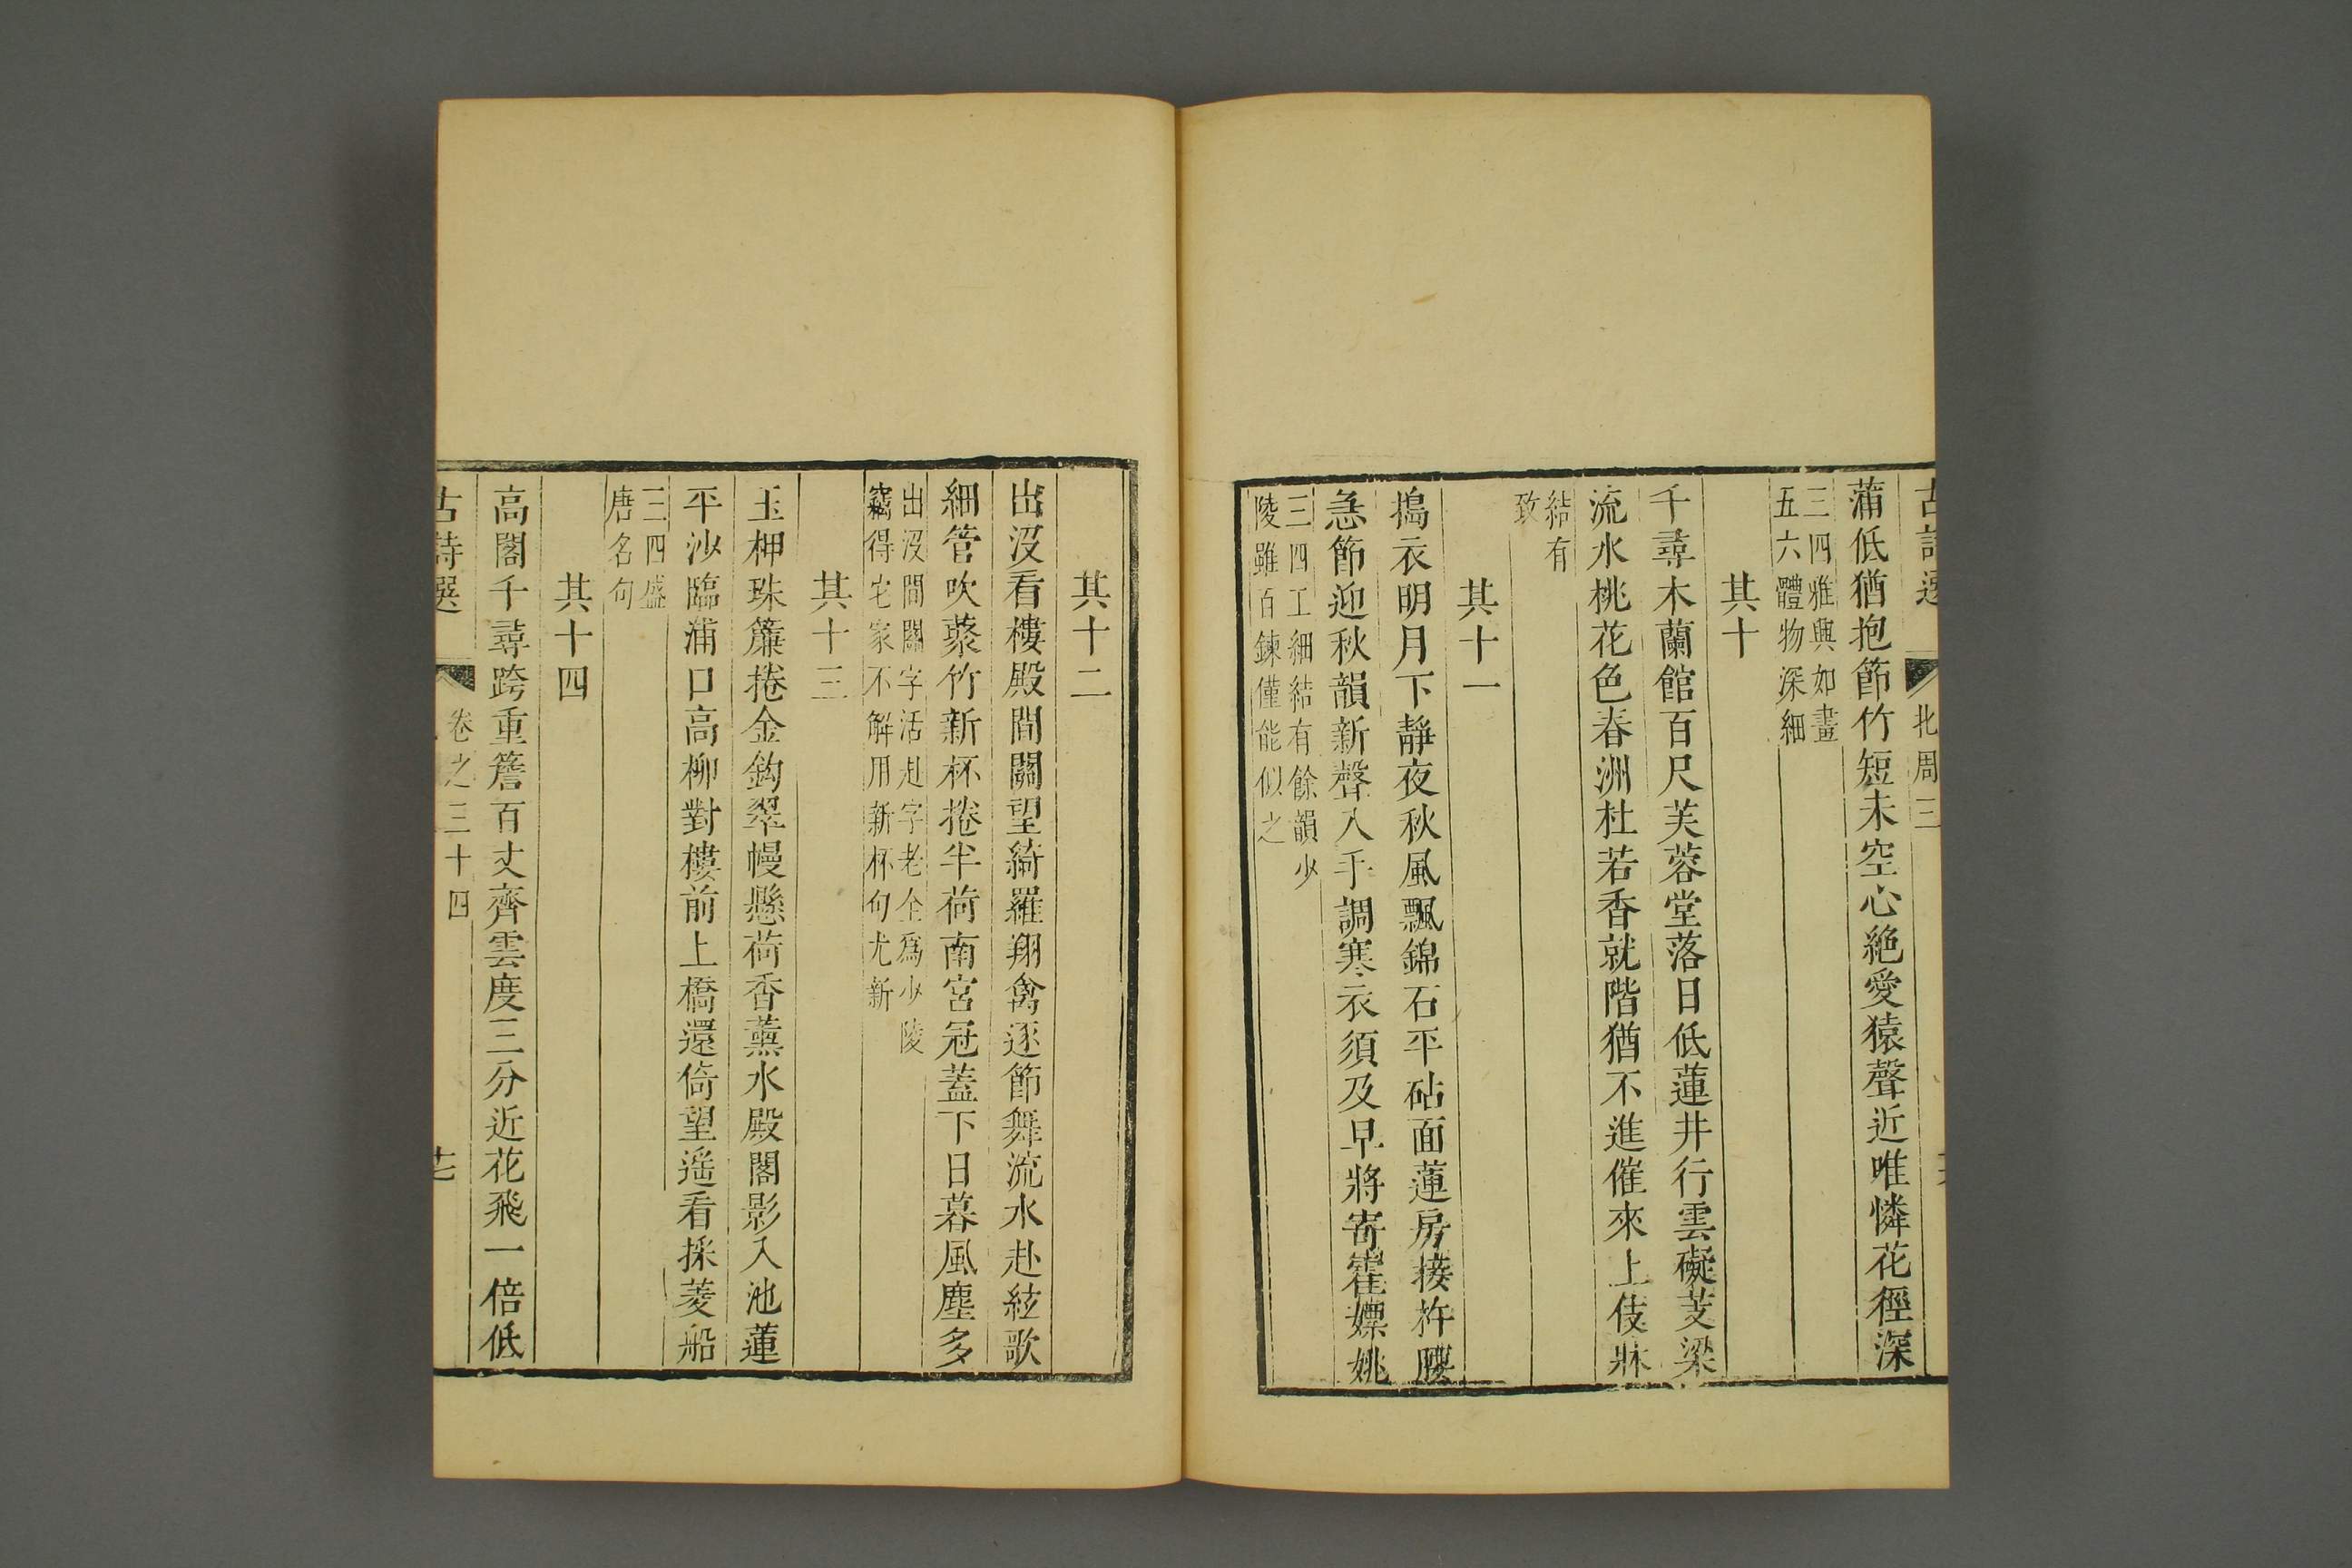 北周三
蒲低猶抱節竹短未空心絶愛猿聲近唯憐花徑深
三四雅興如畫
五六體物深細
其十
千尋木蘭館百尺芙蓉堂落日低蓮井行雲礙芰梁
流水桃花色春洲杜若香就階猶不進催來上伎牀
結有
致
其十一
搗衣明月下靜夜秋風飄錦石平砧面蓮房接杵腰
急節迎秋韻新聲入手調寒衣須及早將寄霍嫖姚
三四工細結有餘韻少
陵雖百鍊僅能似之
其十二
出沒看樓殿間關望綺羅翔禽逐節舞流水赴絃歌
細管吹藂竹新杯捲半荷南宮冠蓋下日暮風塵多
出沒間關字活赴字老全為少陵
竊得宅家不解用新杯句尤新
其十三
玉柙珠簾捲金鈎翠幔懸荷香薰水殿閣影入池蓮
平沙臨浦口高柳對樓前上橋還倚望遙看採菱船
三四盛
唐名句
其十四
高閣千尋跨重簷百丈齊雲度三分近花飛一倍低
古詩選 卷之三十四